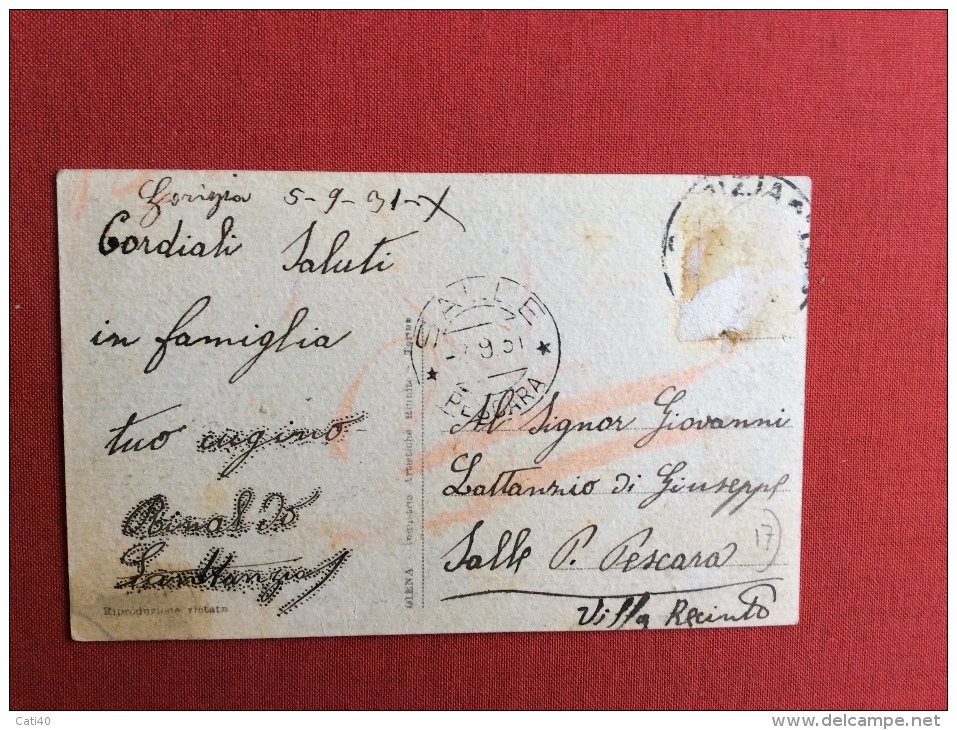 Gorizia 5-9-31-X
Cordiali Saluti
in famiglia
tuo cugino
Rinaldo
Lanttanzio
Riproduzione vietata
DIENA Artistiche Riunite - Torino
SALLE
7.9.31
PESCARA
Al Signor Giovanni
Lattanzio di Giuseppe
Salle P. Pescara
Villa Recinto
17
Cati40
www.delcampe.net